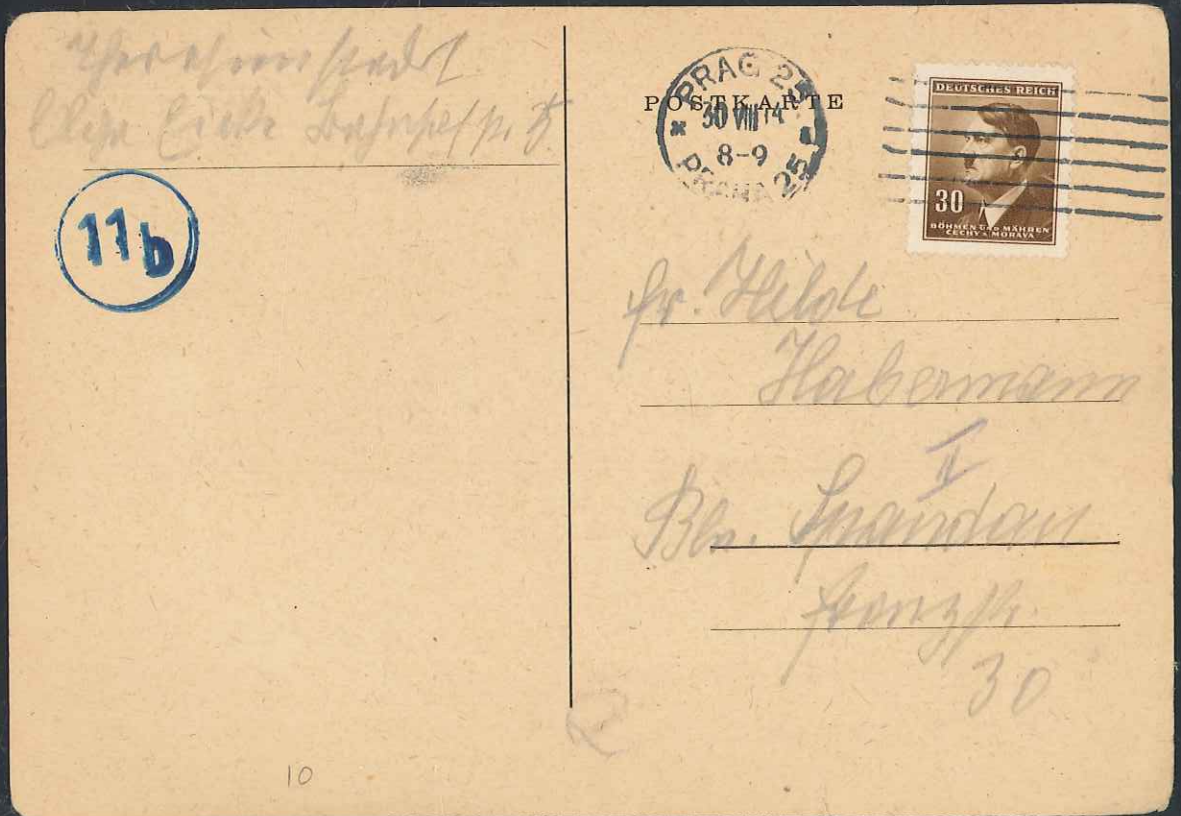 Theresienstadt
Bahnhofstr.
11b
POSTKARTE
PRAG 25
30 VIII 44
8-9
PRAHA 25
DEUTSCHES REICH
30
BÖHMEN UND MÄHREN
ČECHY A MORAVA
Fr. Hilde
Habermann
II
Bln. Spandau
Franzstr.
30
10